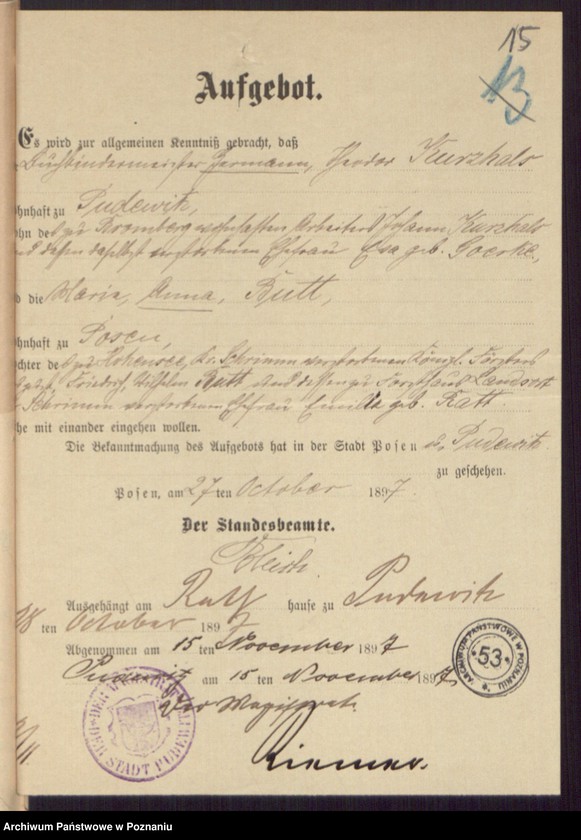 15
13
Aufgebot.
Es wird zur allgemeinen Kenntniß gebracht, daß
Buchbindermeister Hermann, Theodor Kurzhals
hnhaft zu Pudewitz,
hn des zu Bromberg wohnhaften Arbeiters Johann Kurzhals
nd dessen daselbst verstorbenen Ehefrau Eva geb. Goerke,
d die Maria, Anna, Butt,
hnhaft zu Posen,
chter des zu Hohensee, Kr. Schrimm verstorbenen Königl. Försters
Friedrich, Wilhelm Butt und dessen zu Forsthaus
Schrimm verstorbenen Ehefrau Emilia geb. Ratt
he mit einander eingehen wollen.
Die Bekanntmachung des Aufgebots hat in der Stadt Posen u. Pudewitz
zu geschehen.
Posen, am 27 ten October 1897.
Der Standesbeamte.
Ausgehängt am Rath hause zu Pudewitz
28 ten October 1897
Abgenommen am 15 ten November 1897
Pudewitz am 15 ten November 1897
Der Magistrat.
Riemer.
ARCHIWUM PAŃSTWOWE W POZNANIU
53
DER STADT PUDEWITZ
Archiwum Państwowe w Poznaniu